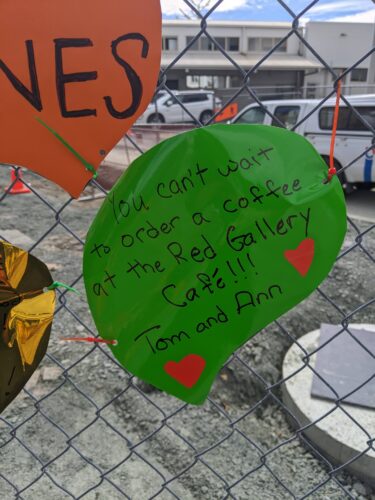 NES
You can't wait
to order a coffee
at the Red Gallery
Café!!!
Tom and Ann